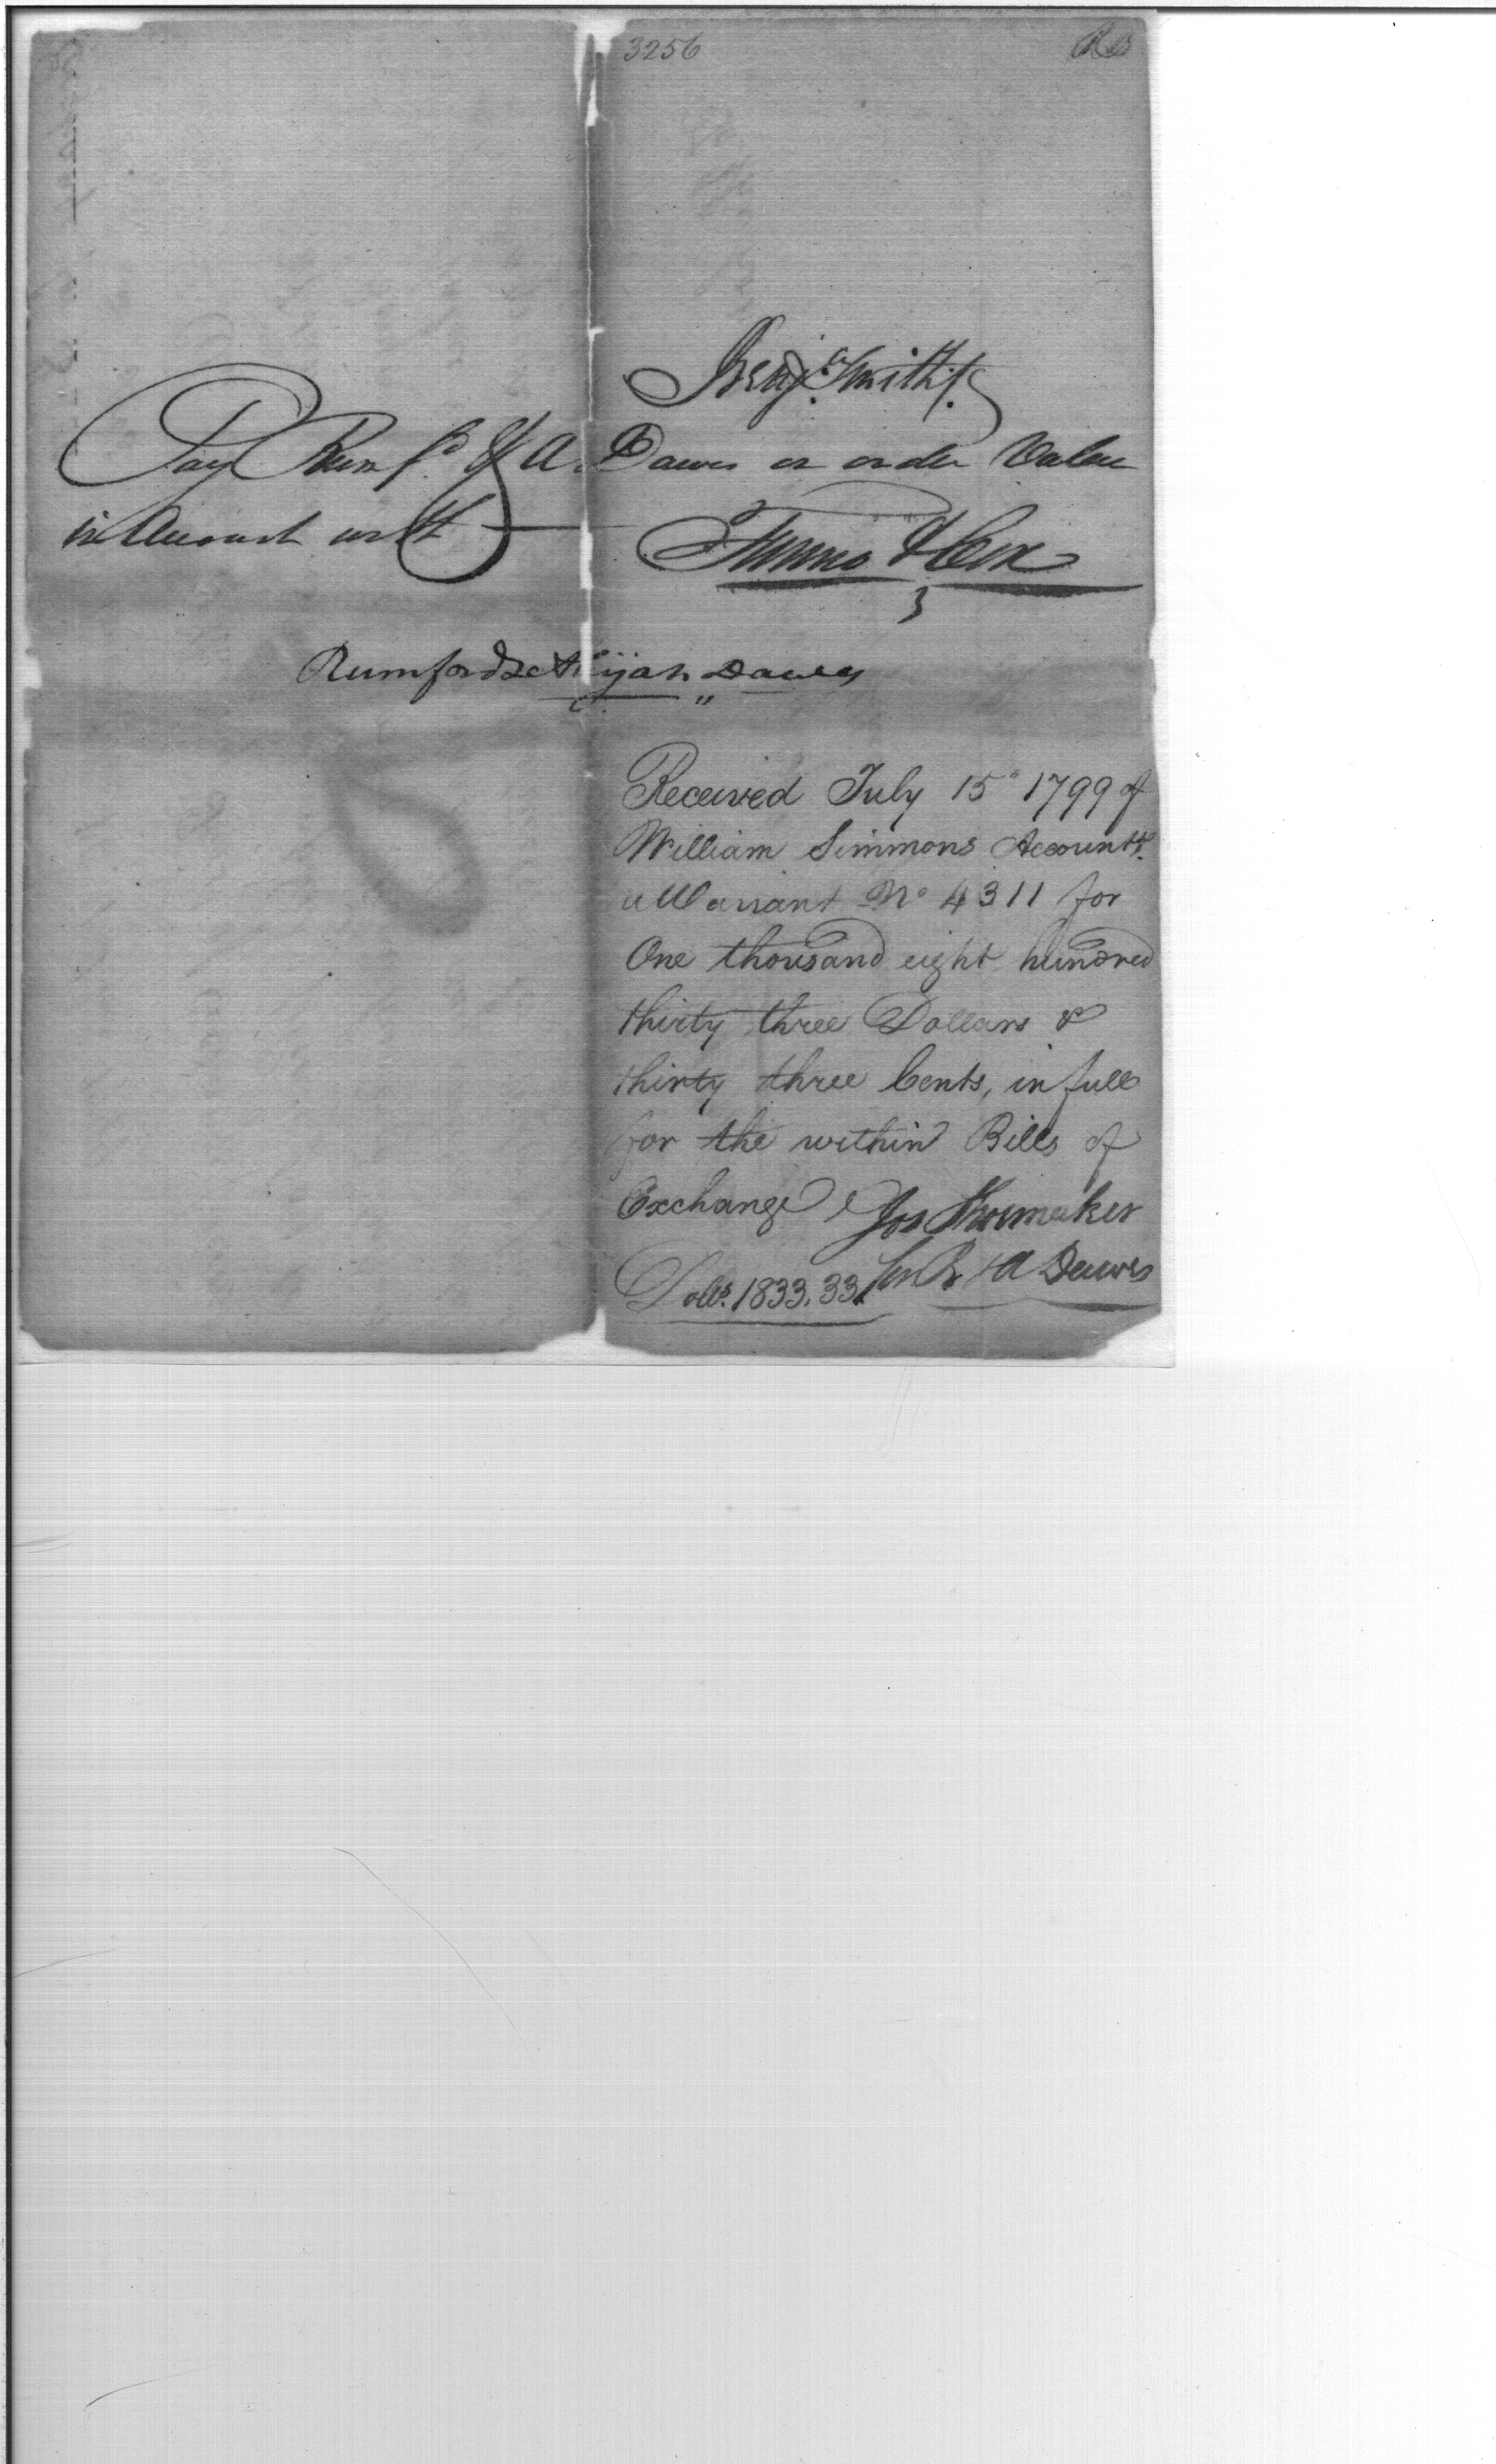 3256
Benjn. Smith
Pay Rumfd. & A. Dawes or order Value
in Account with
Tunno & Cox
Rumford & Abijah Dawes
Received July 15" 1799 of
William Simmons Accountt.
a Warrant No 4311 for
One thousand eight hundred
thirty three Dollars &
thirty three Cents, in full
for the within Bills of
Exchange
Jos Shoemaker
for R & A Dawes
Dolls. 1833.33